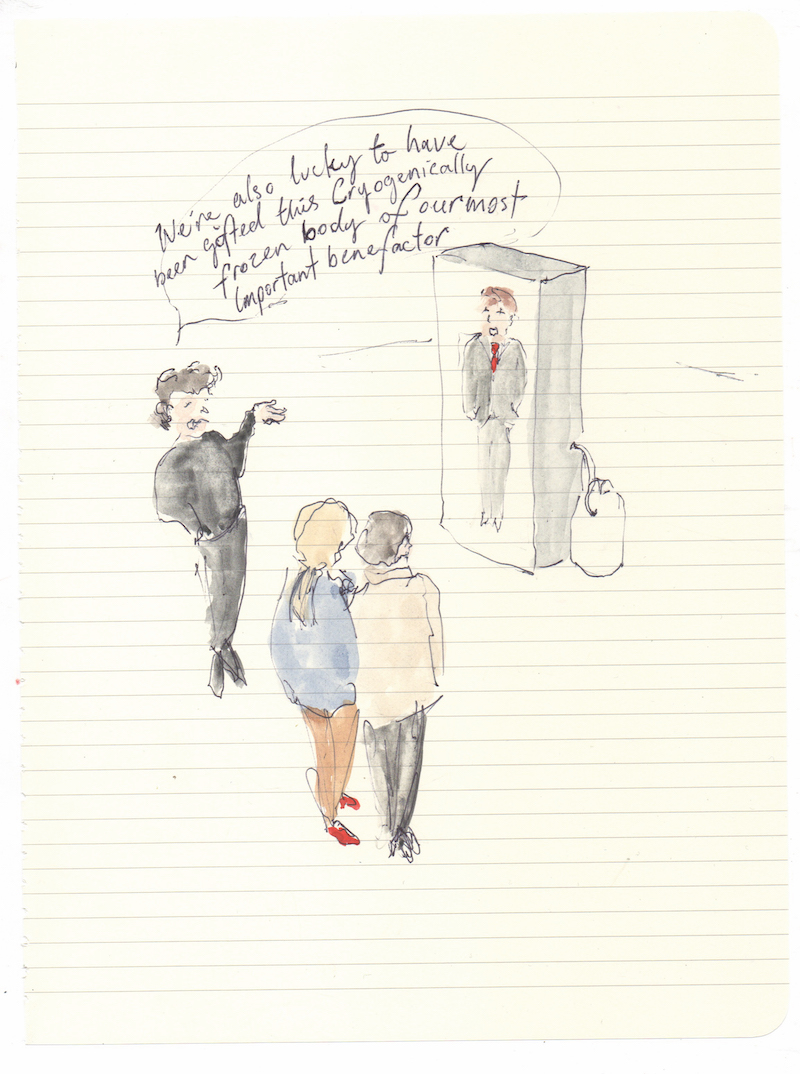 We're also lucky to have
been gifted this Cryogenically
frozen body of our most
important benefactor